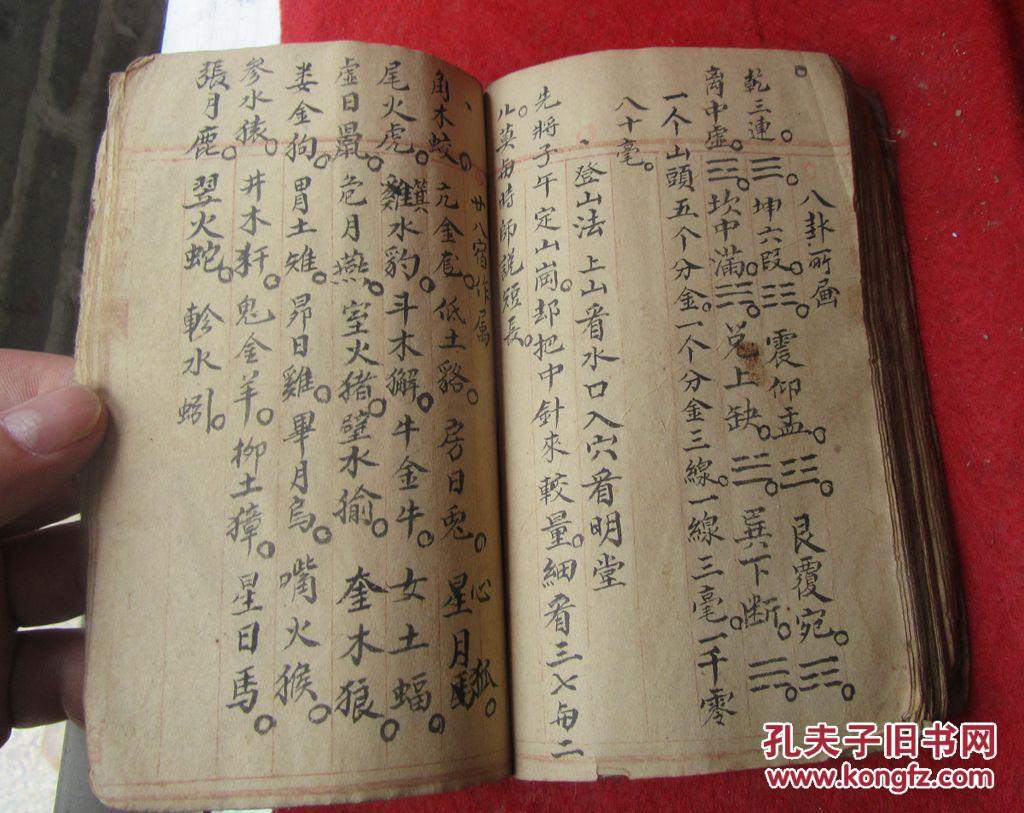 八卦所画
乾三連。☰。坤六段。☷。震仰盂。☳。艮覆宛。☶。
離中虛。☲。坎中滿。☵。兑上缺。☱。巽下断。☴。
一个山頭五个分金。一个分金三線。一線三毫。一千零
八十毫。
登山法 上山看水口入穴看明堂
先將子午定山崗。却把中針來較量。細看三七与二
八。莫与時師說短長。
廿八宿作属
角木蛟。亢金竜。低土貉。房日兎。心月狐。
尾火虎。箕水豹。斗木獬。牛金牛。女土蝠。
虚日鼠。危月燕。室火猪。壁水㺄。奎木狼。
娄金狗。胃土雉。昴日雞。畢月烏。嘴火猴。
参水猿。井木犴。鬼金羊。柳土獐。星日馬。
張月鹿。翌火蛇。軫水蚓。
孔夫子旧书网
www.kongfz.com